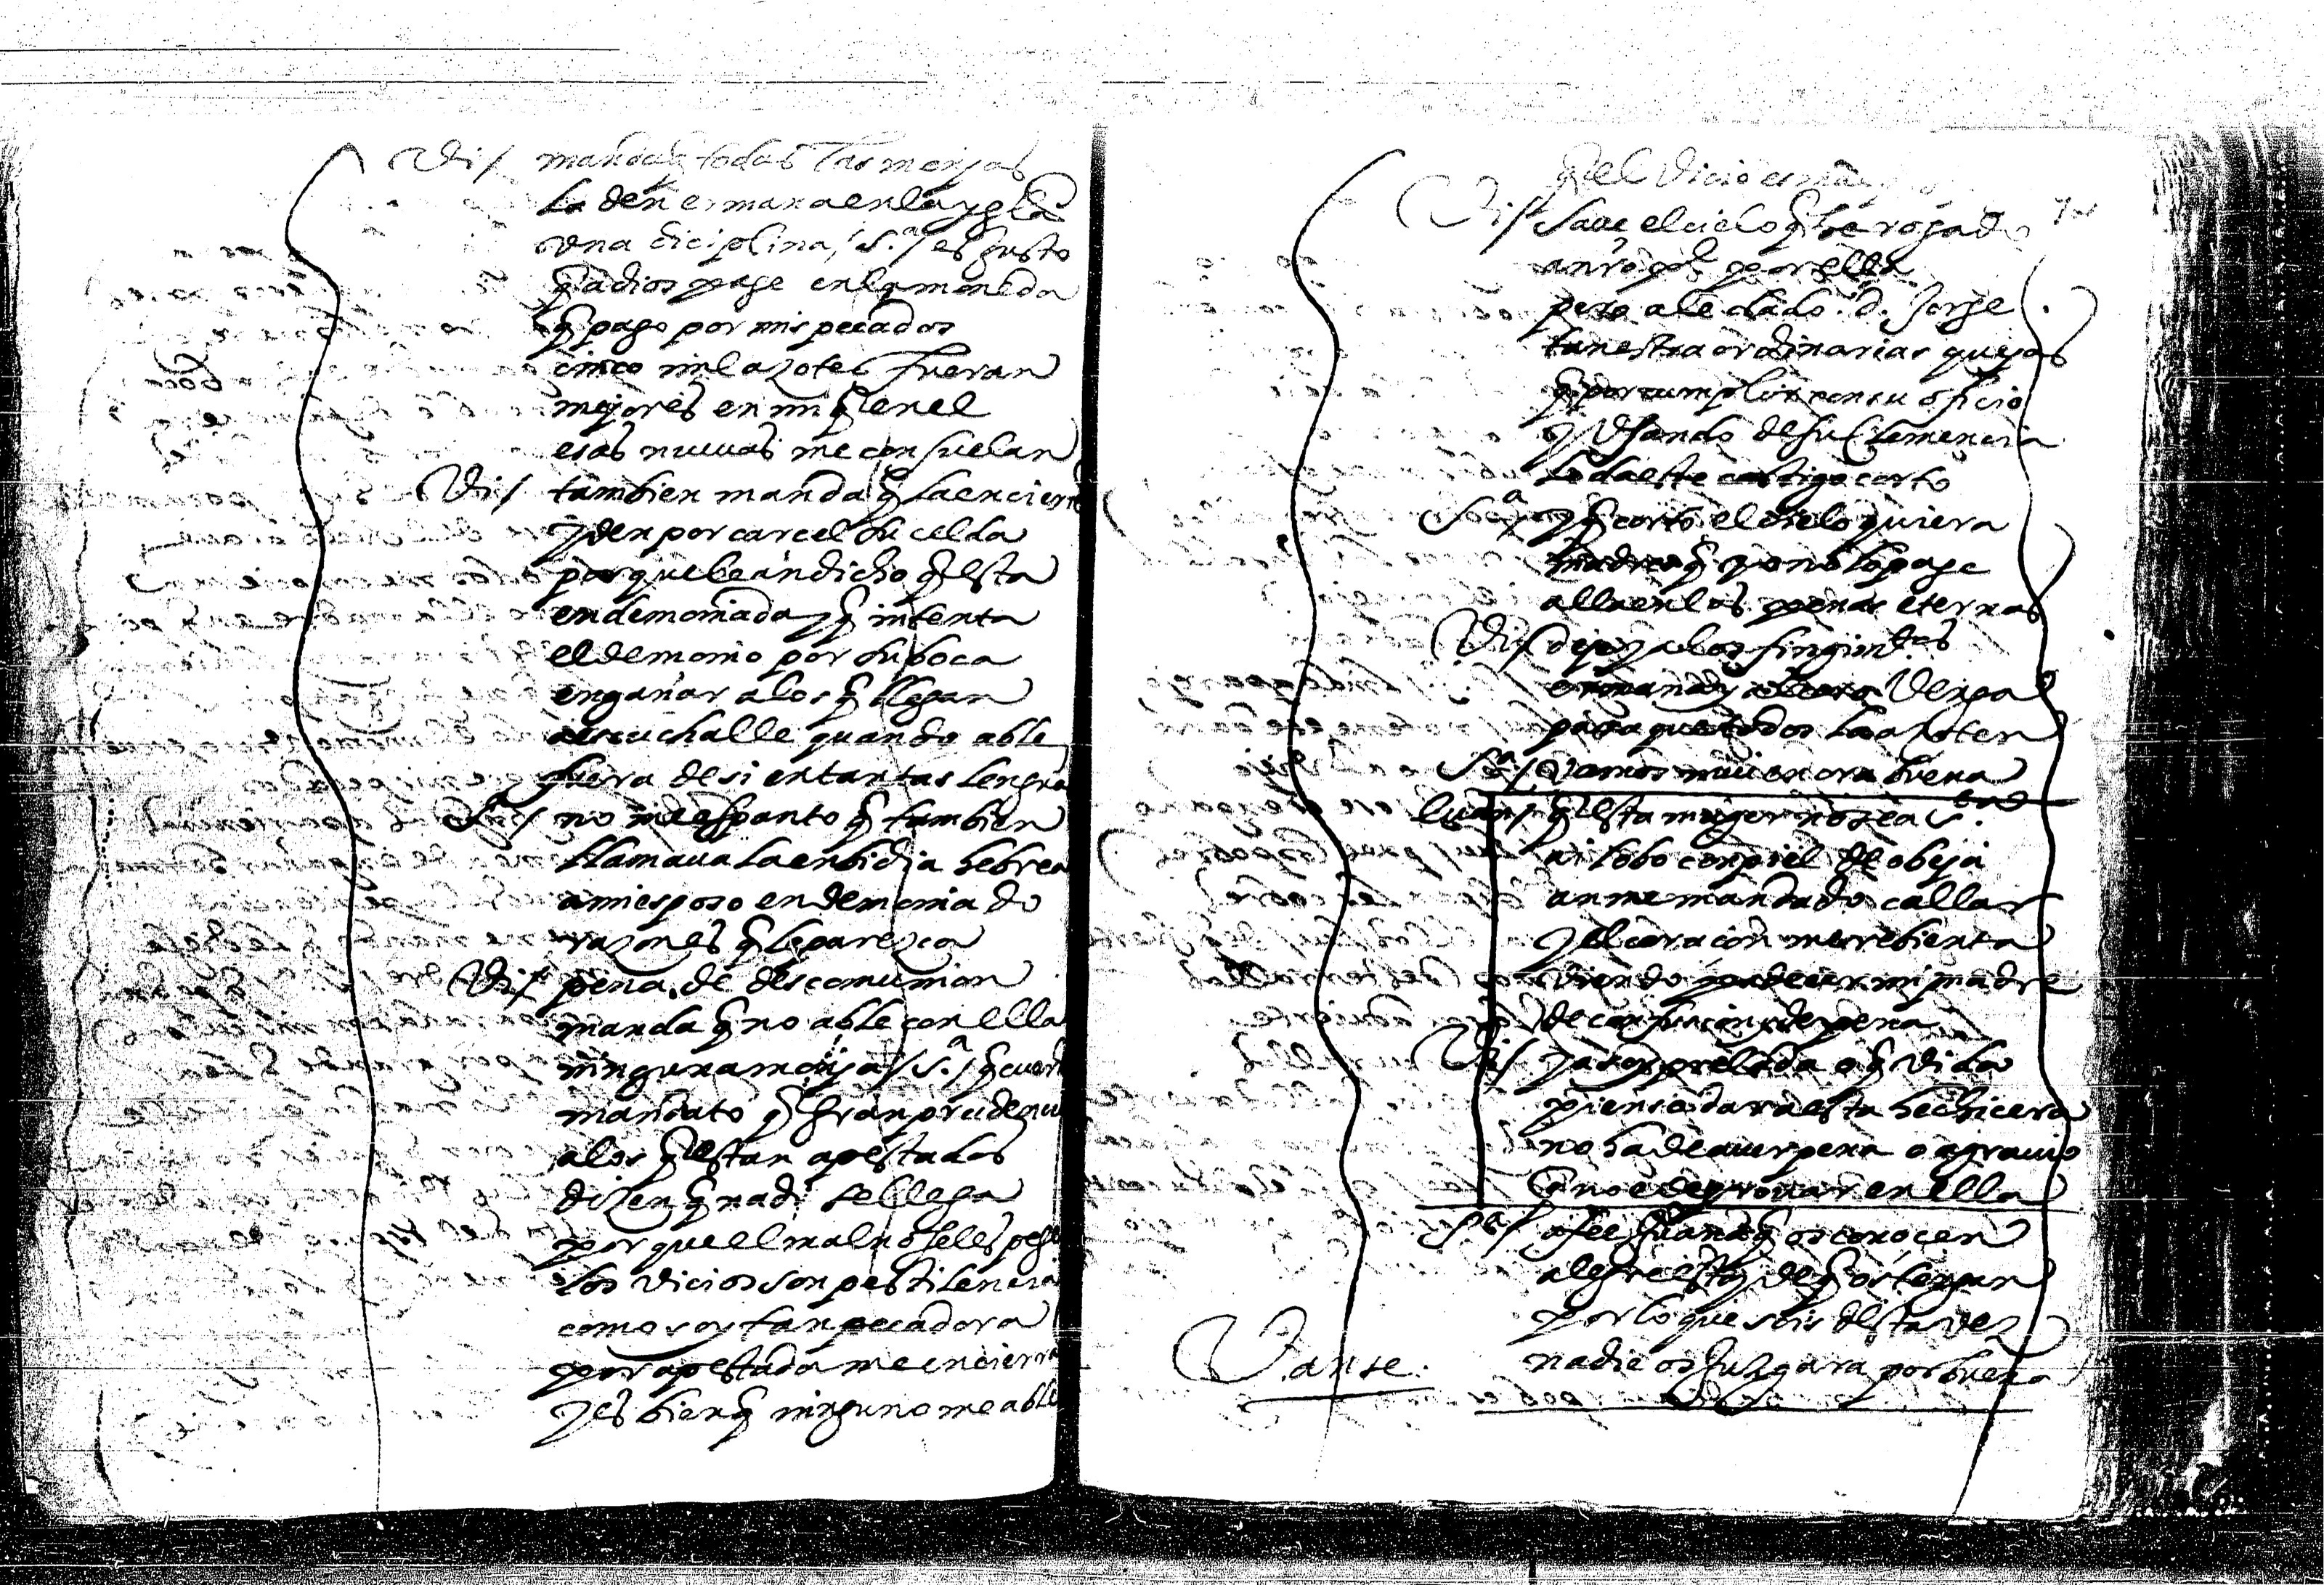 Vi/ manda a todas las monjas
la den ermana en la yglā
vna diciplina / S.ª / es justo
q̃ a dios page en la moneda
q̃ pago por mis pecados
cinco mil azotes fueran
mejores en mi q̃ en el
esas nuuas me consuelan
Vi/ tambien manda q̃ la encierre
y den por carcel su celda
porque le an dicho q̃ esta
endemoniada y q̃ intenta
el demonio por su boca
engañar a los q̃ llegan
a escuchalle quando able
fuera de si en tantas lenguas
S.ª/ no me espanto q̃ tambien
llamaua la enbidia hebrea
a mi esposo endemoniado
razones q̃ le parezca
Vi/ pena de descomunion
manda q̃ no able con ella
ninguna monja / S.ª / q̃ cuerdo
mandato q̃ gran prudençia
a los q̃ estan apestados
dizen q̃ nadi se llega
porque el mal no se les pege
los vicios son pestilencia
como soy tan pecadora
por apestada me encierran
y es bien q̃ ninguno me able
q̃ el vicio
Vi/ saue el cielo q̃ le rogado
a nr̃o por ella
pero ale dado d. Jorge
tan estraordinarias quejas
q̃ por cumplir con su oficio
y vsando de su clemencia
le da este castigo corto
S.ª/ y q̃ corto el cielo quiera
madre q̃ yo no lo page
alla en las penas eternas
Vi/ deje ya los fingimt.os
ermana y venga
para que todos la azoten
S.ª/ vamos muy en ora buena
luan/ q̃ esta muger no sea S.ta
ni lobo con piel de obeja
an me mandado callar
y el coraçon me rrebienta
viendo padecer mi madre
de confusion y de pena
Vi/ ya soy prelada o q̃ vida
pienso dar a esta hechicera
no ha de auer pena o agrauio
q̃ no e de prouar en ella
S.ª/ a fee Juana q̃ os conocen
alegre estoy de q̃ os tengan
por lo que sois desta vez
nadie os Juzgara por buena
Vanse.